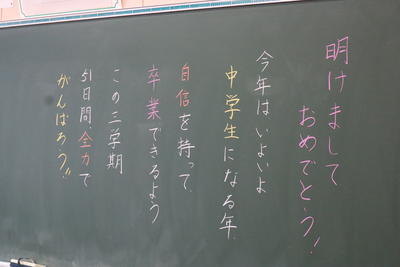 明けまして
おめでとう!
今年はいよいよ
中学生になる年
自信を持って、
卒業できるよう
この三学期
51日間、全力で
がんばろう!!